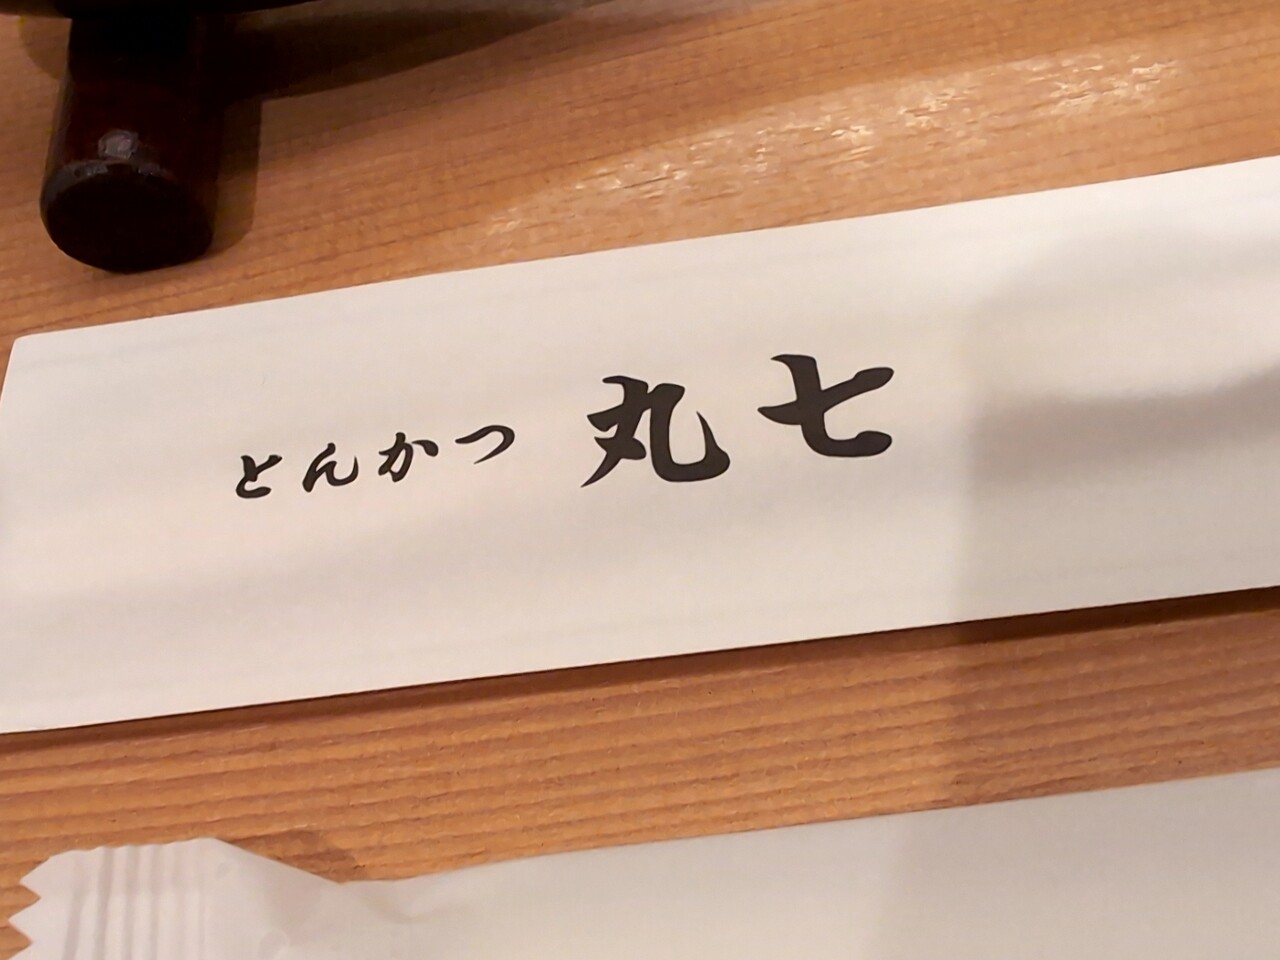 とんかつ 丸七